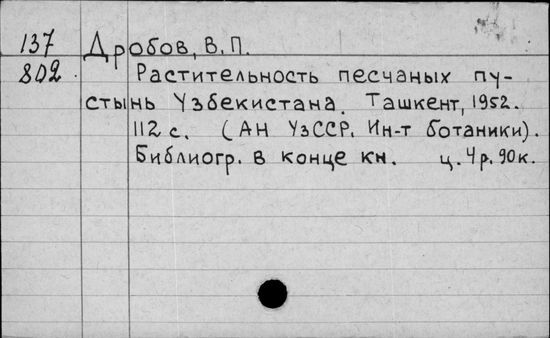 137 Дробов, В.П.
802 Растительность песчаных пу-
стынь Узбекистана. Ташкент, 1952.
112 с. (АН УзССР. Ин-т ботаники).
Библиогр. в конце кн. ц. 4р. 90к.